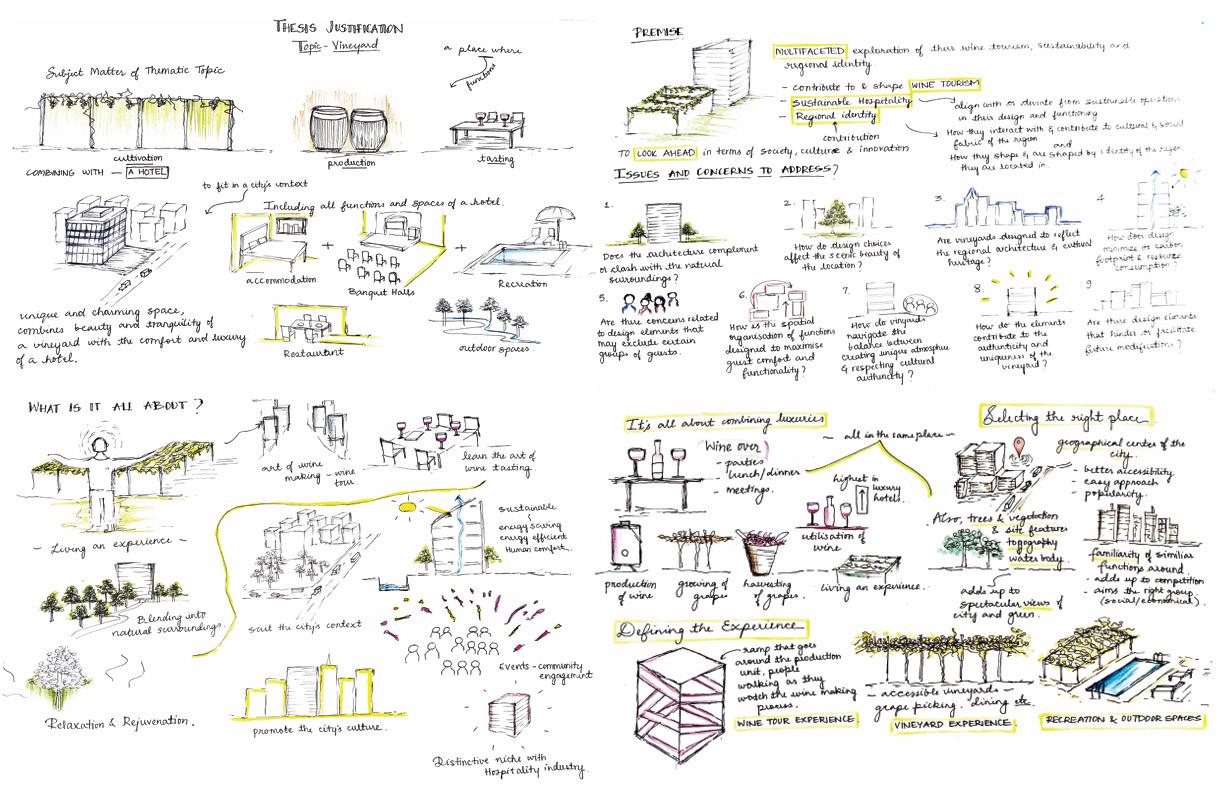 THESIS JUSTIFICATION
Topic - Vineyard
Subject Matter of Thematic Topic
a place where
functions
cultivation
production
tasting
COMBINING WITH — A HOTEL
to fit in a city's context
Including all functions and spaces of a hotel.
accommodation
+
Banquet Halls
+
Recreation
Restauitant
outdoor spaces.
unique and charming space,
combines beauty and tranquility of
a vineyard with the comfort and luxury
of a hotel.
PREMISE
MULTIFACETED exploration of their wine tourism, sustainability and
regional identity
- contribute to & shape WINE TOURISM
- Sustainable Hospitality
- Regional identity
contribution
align with or deviate from sustainable operations
in their design and functioning
How they interact with & contribute to cultural & social
fabric of the region
and
How they shape & are shaped by identity of the region
they are located in
TO LOOK AHEAD in terms of society, culture & innovation
ISSUES AND CONCERNS TO ADDRESS?
1.
Does the architecture complement
or clash with the natural
surroundings?
2.
How do design choices
affect the scenic beauty of
the location?
3.
Are vineyards designed to reflect
the regional architecture & cultural
heritage?
4
How does design
minimize its carbon
footprint & resource
consumption?
5.
Are there concerns related
to design elements that
may exclude certain
groups of guests.
6.
How is the spatial
organisation of functions
designed to maximise
guest comfort and
functionality?
7.
How do vinyards
navigate the
balance between
creating unique atmosphere
& respecting cultural
authenticity?
8.
How do the elements
contribute to the
authenticity and
uniqueness of the
vineyard?
9
Are there design elements
that hinder or facilitate
future modifications?
WHAT IS IT ALL ABOUT?
- Living an experience -
art of wine
making - wine
tour
learn the art of
wine tasting
Blending into
natural surroundings.
suit the city's context
sustainable
energy saving
energy efficient
Human comfort.
Relaxation & Rejuvenation.
promote the city's culture.
Events - community
engagement
Distinctive niche with
Hospitality industry.
It's all about combining luxuries
"Wine over
- parties
- lunch/dinner
- meetings.
- all in the same place -
highest in
luxury
hotels.
utilisation of
wine
production
of wine
growing of
grapes
harvesting
of grapes.
living an experience.
Selecting the right place
geographical center of the
city.
- better accessibility
- easy approach
- popularity.
Also, trees & vegetation
& site features
topography
water body.
adds up to
spectacular views of
city and green.
familiarity of similiar
functions around.
- adds up to competition
- aims the right group
(social/economical).
Defining the Experience
ramp that goes
around the production
unit, people
walking as they
watch the wine making
process.
WINE TOUR EXPERIENCE
- accessible vineyards -
grape picking, dining etc
VINEYARD EXPERIENCE.
RECREATION & OUTDOOR SPACES